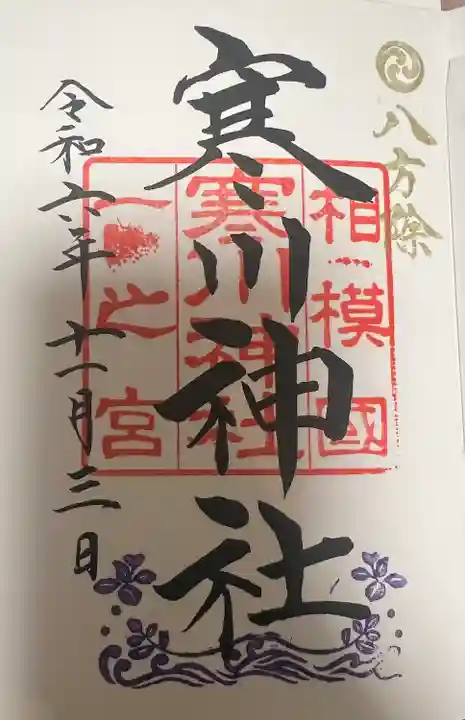 八方除
相模國
寒川神社
一之宮
寒川神社
令和六年十一月三日